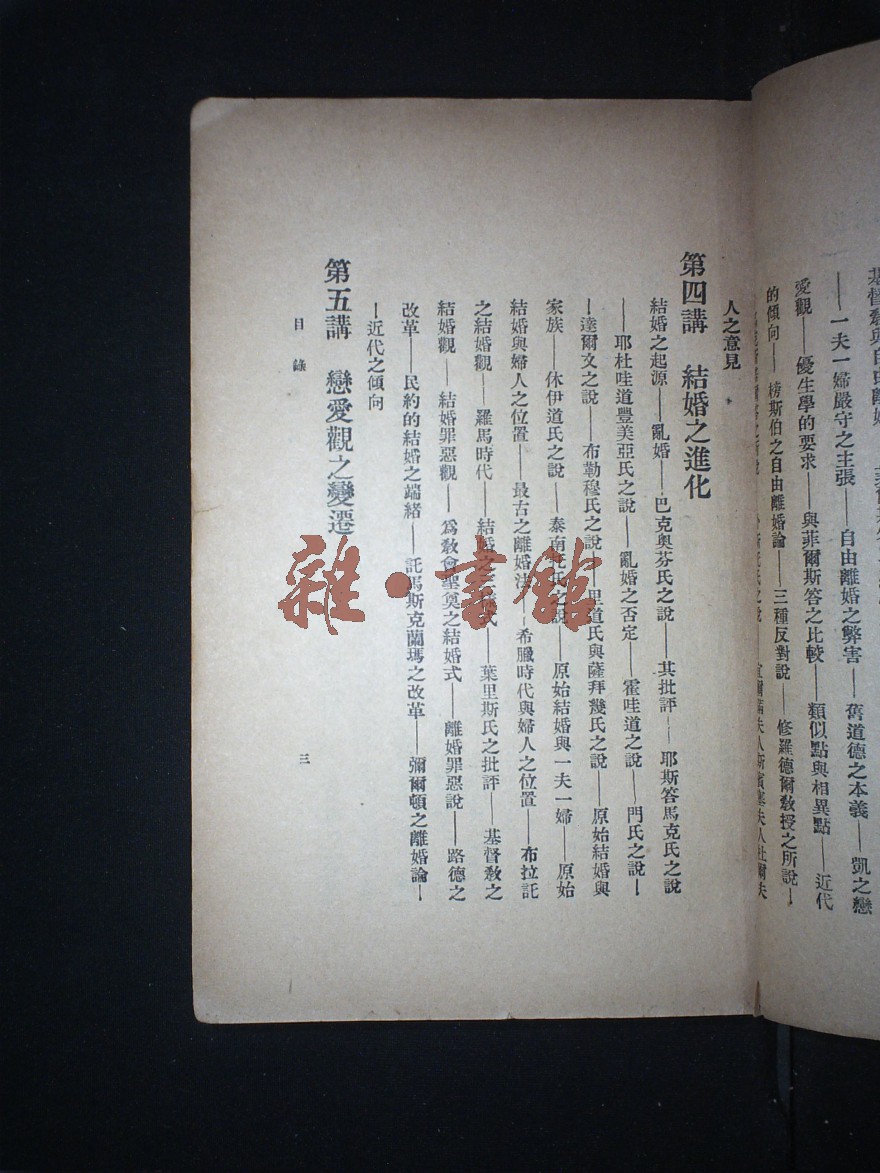 一夫一婦嚴守之主張——自由離婚之弊害——舊道德之本義——凱之戀
愛觀——優生學的要求——與菲爾斯答之比較——類似點與相異點——近代
的傾向——榜斯伯之自由離婚論——三種反對說——修羅德爾敎授之所說—
人之意見
第四講　結婚之進化
結婚之起源——亂婚——巴克奧芬氏之說——其批評——耶斯答馬克氏之說
——耶杜哇道豐美亞氏之說——亂婚之否定——霍哇道之說——門氏之說—
—達爾文之說——布勒穆氏之說——里道氏與薩拜幾氏之說——原始結婚與
家族——休伊道氏之說——泰南氏之說——原始結婚與一夫一婦——原始
結婚與婦人之位置——最古之離婚法——希臘時代與婦人之位置——布拉託
之結婚觀——羅馬時代——結婚之三樣式——葉里斯氏之批評——基督敎之
結婚觀——結婚罪惡觀——爲敎會聖奠之結婚式——離婚罪惡說——路德之
改革——民約的結婚之端緖——託馬斯克蘭瑪之改革——彌爾頓之離婚論—
—近代之傾向
第五講　戀愛觀之變遷
目錄
三
雜·書館